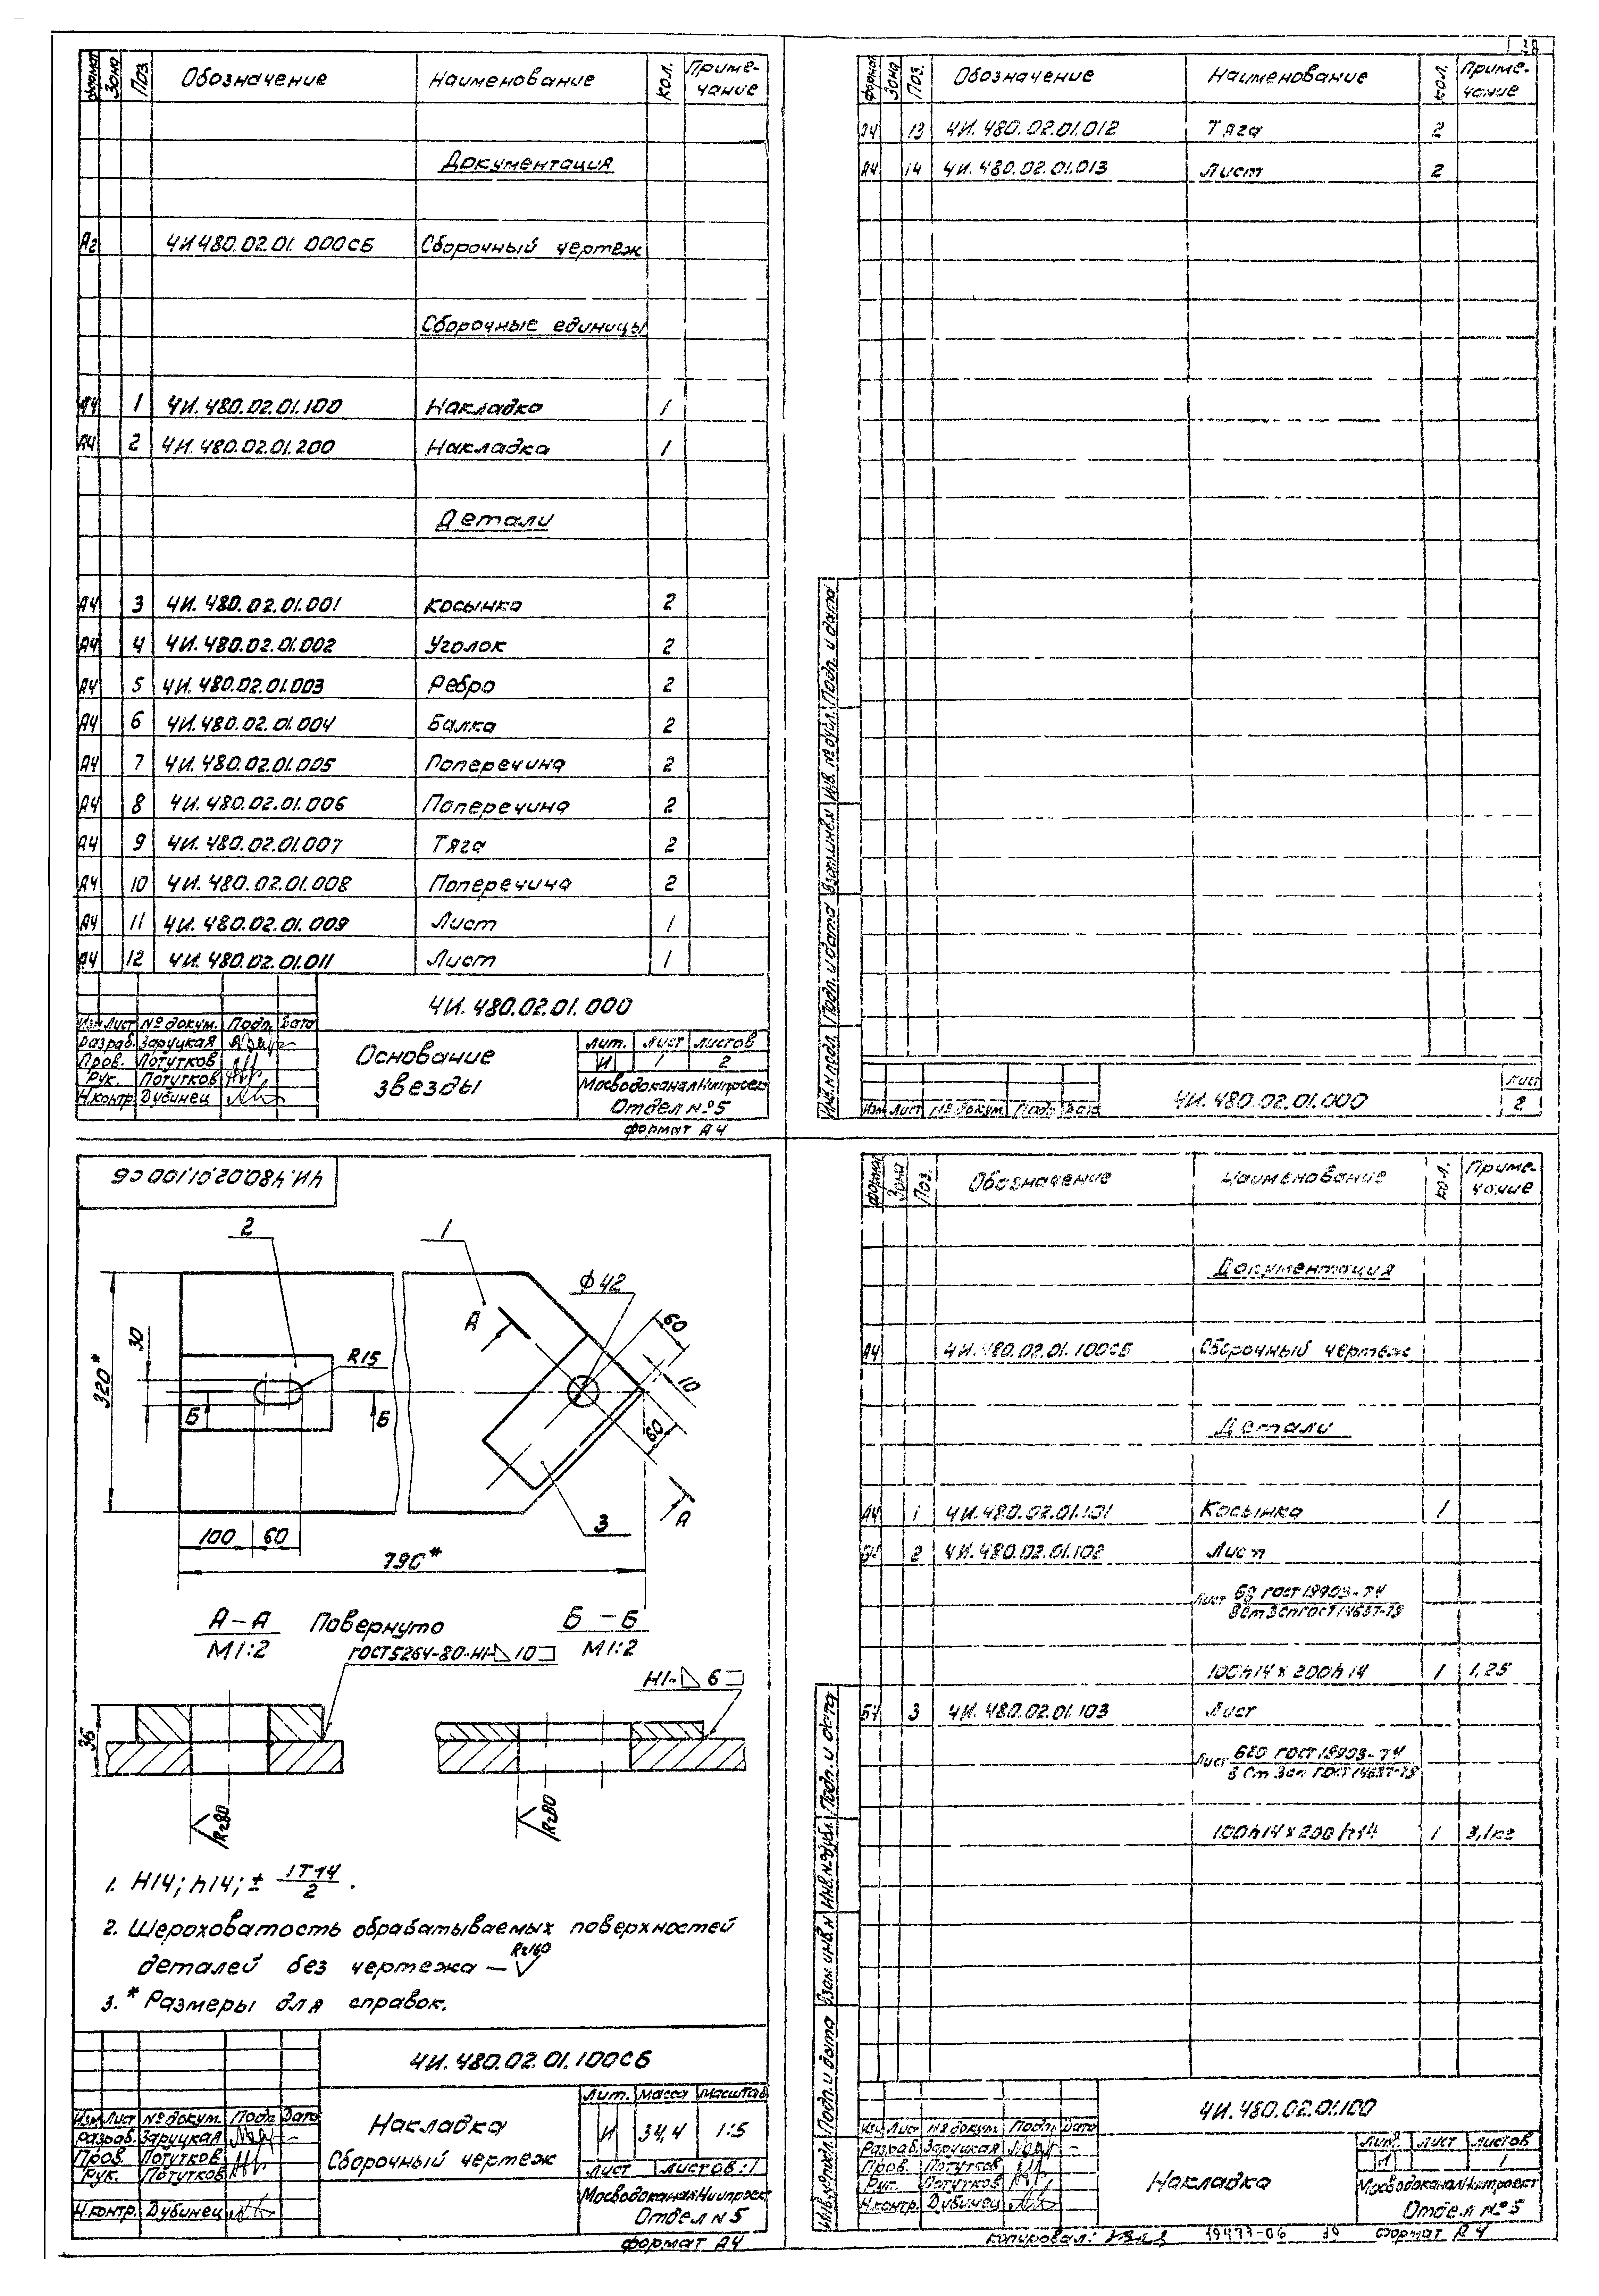 38
формат Зона Поз. Обозначение Наименование Кол. Примечание
Документация
А2 4И480.02.01.000СБ Сборочный чертеж
Сборочные единицы
А4 1 4И.480.02.01.100 Накладка 1
А4 2 4И.480.02.01.200 Накладка 1
Детали
А4 3 4И.480.02.01.001 Косынка 2
А4 4 4И.480.02.01.002 Уголок 2
А4 5 4И.480.02.01.003 Ребро 2
А4 6 4И.480.02.01.004 Балка 2
А4 7 4И.480.02.01.005 Поперечина 2
А4 8 4И.480.02.01.006 Поперечина 2
А4 9 4И.480.02.01.007 Тяга 2
А4 10 4И.480.02.01.008 Поперечина 2
А4 11 4И.480.02.01.009 Лист 1
А4 12 4И.480.02.01.011 Лист 1
4И.480.02.01.000
Изм Лист № докум. Подп. Дата
Разраб. Заруцкая
Пров. Потутков
Рук. Потутков
Н.контр. Дубинец
Основание
звезды
Лит. Лист Листов
И 1 2
МосводоканалНиипроект
Отдел №5
формат А4
формат Зона Поз. Обозначение Наименование Кол. Примечание
А4 13 4И.480.02.01.012 Тяга 2
А4 14 4И.480.02.01.013 Лист 2
Инв.№ подл. Подп. и дата Взам.инв.№ Инв. № дубл. Подп. и дата
Изм Лист № докум. Подп. Дата
4И.480.02.01.000
Лист
2
4И.480.02.01.100СБ
2
1
ф42
А
60
30
R15
320*
10
Б
Б
60
3
А
100 60
790*
А-А Повернуто
М1:2
ГОСТ5264-80-Н1-◺10
Б-Б
М1:2
Н1-◺6
36
Rz80
Rz80
1. Н14; h14; ± IT14/2.
2. Шероховатость обрабатываемых поверхностей
деталей без чертежа — Rz160
3.* Размеры для справок.
4И.480.02.01.100СБ
Изм Лист № докум. Подп. Дата
Разраб. Заруцкая
Пров. Потутков
Рук. Потутков
Н.контр. Дубинец
Накладка
Сборочный чертеж
Лит. Масса Масштаб
И 34,4 1:5
Лист Листов:1
МосводоканалНиипроект
Отдел №5
формат А4
формат Зона Поз. Обозначение Наименование Кол. Примечание
Документация
А4 4И.480.02.01.100СБ Сборочный чертеж
Детали
А4 1 4И.480.02.01.101 Косынка 1
Б4 2 4И.480.02.01.102 Лист
Лист Б8 ГОСТ 19903-74
ВСт3сп ГОСТ 14637-79
100h14 х 200h14 1 1,25
Б4 3 4И.480.02.01.103 Лист
Лист Б20 ГОСТ 19903-74
ВСт3сп ГОСТ 14637-79
100h14 х 200h14 1 3,1кг
Инв.№ подл. Подп. и дата Взам.инв.№ Инв.№ дубл. Подп. и дата
4И.480.02.01.100
Изм Лист № докум. Подп. Дата
Разраб. Заруцкая
Пров. Потутков
Рук. Потутков
Н.контр. Дубинец
Накладка
Лит. Лист Листов
1
МосводоканалНиипроект
Отдел №5
копировал: 19477-06 39 формат А4